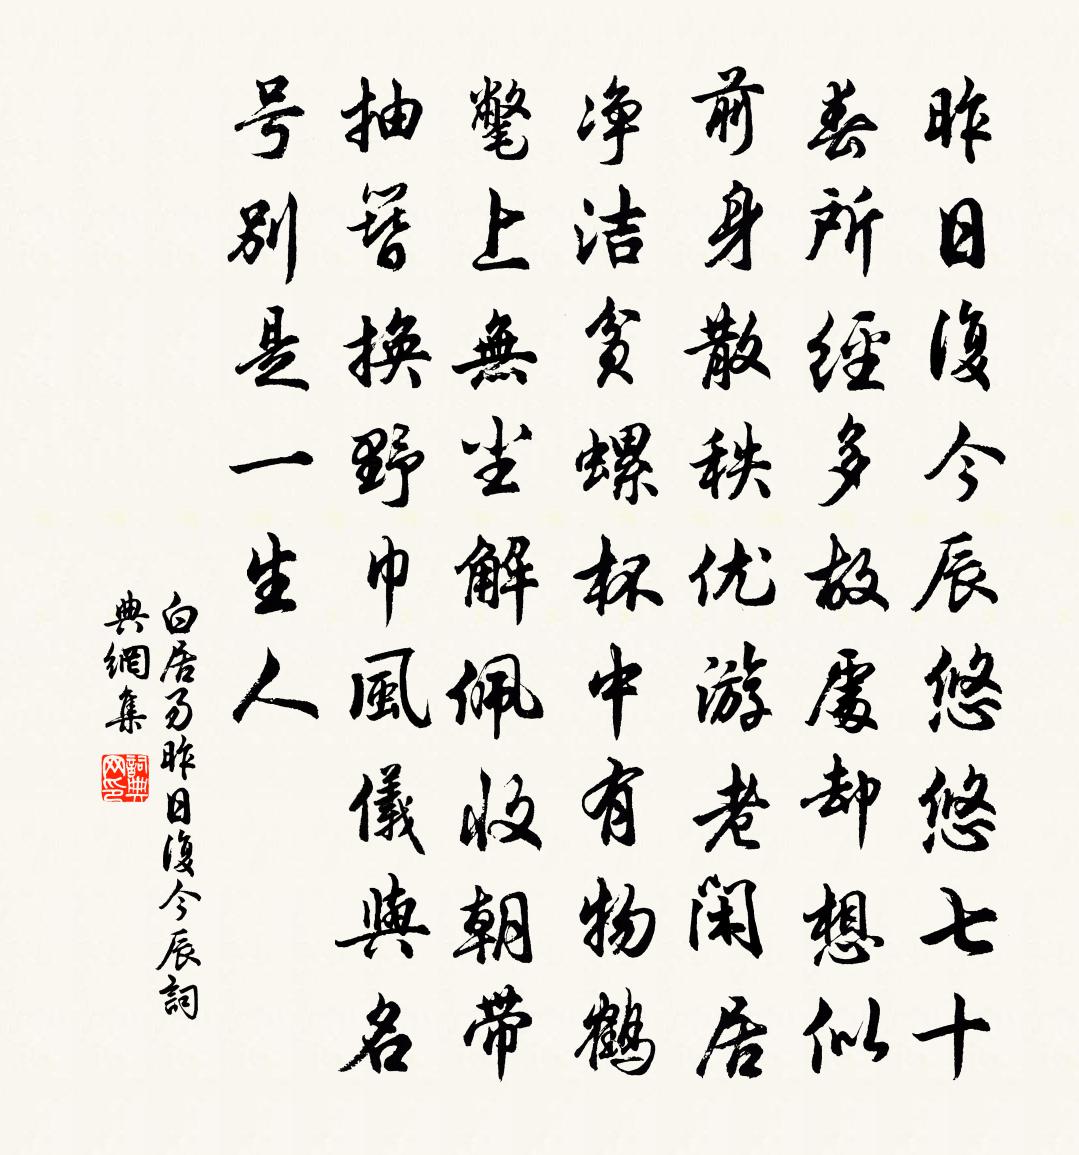 昨日復今辰悠悠七十
春所經多故處却想似
前身散秩优游老闲居
净洁貧螺杯中有物鶴
氅上無尘解佩收朝带
抽簪换野巾風儀與名
号别是一生人
白居易昨日復今辰詞
典網集
詞典
网印